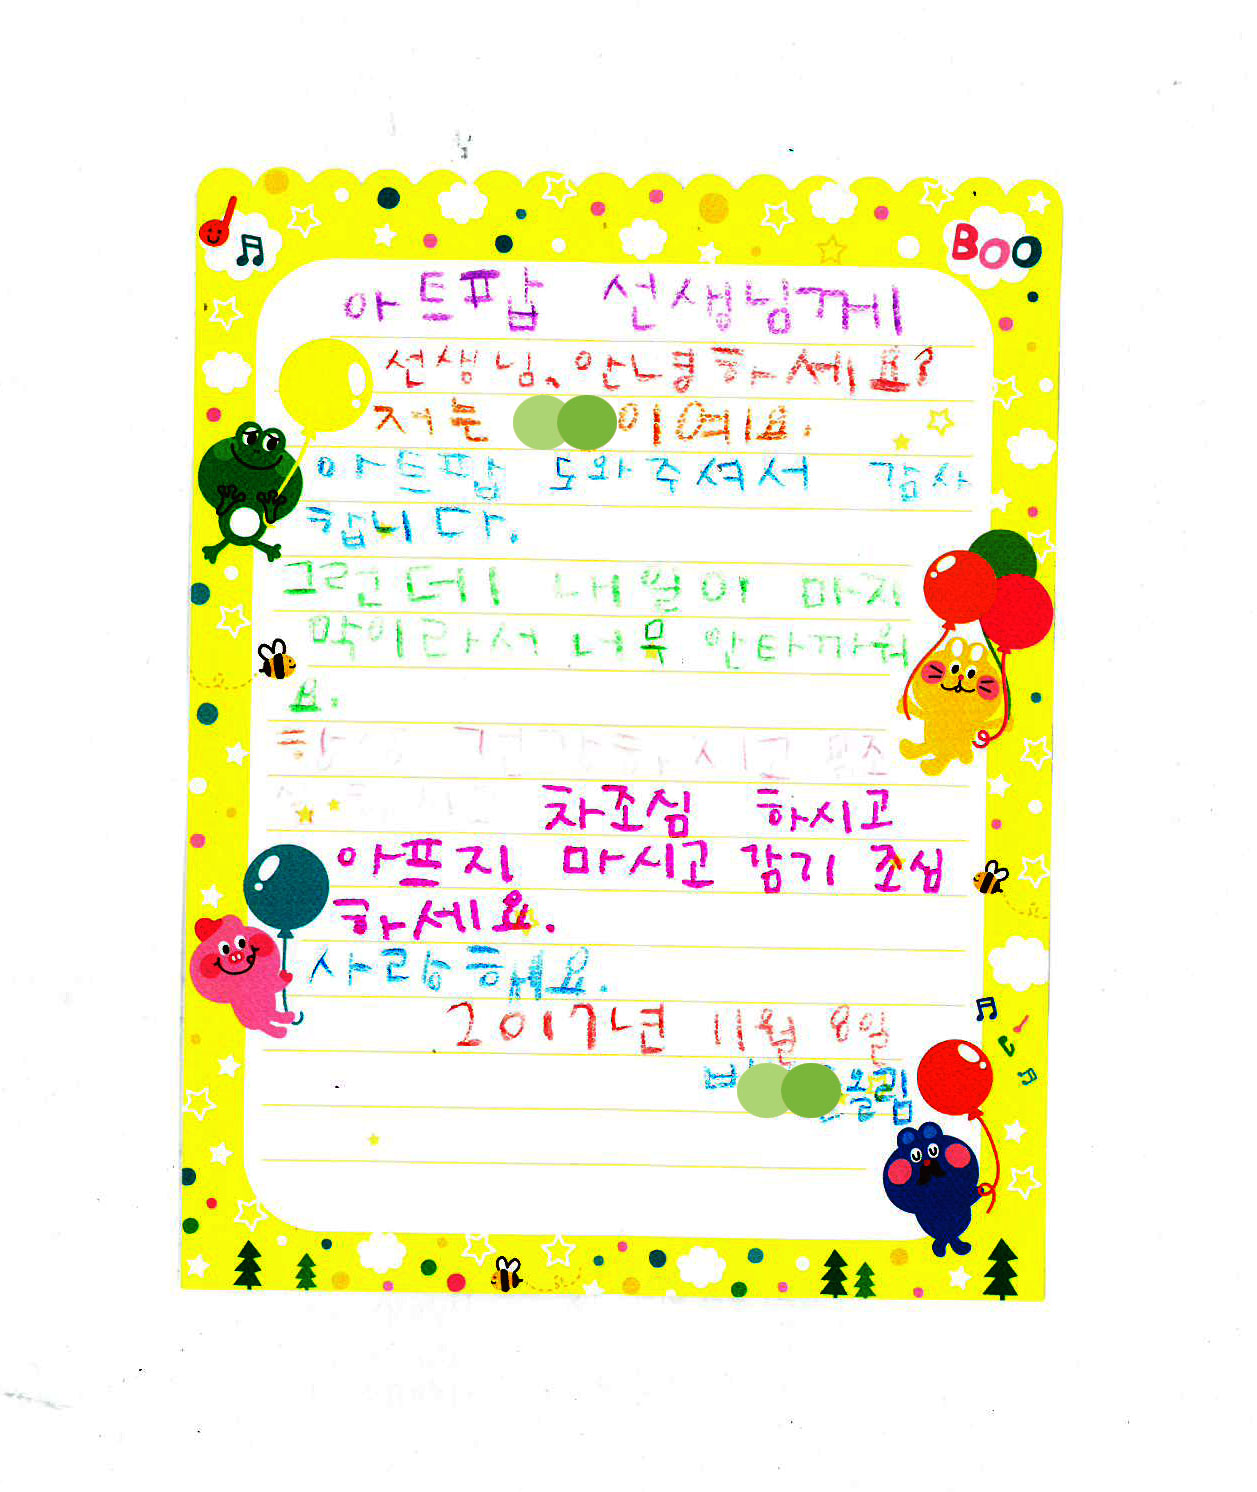 BOO
아트팝 선생님께
선생님, 안녕하세요?
저는 이예요.
아트팝 도와주셔서 감사
캅니다.
그런데 내일이 마지
막이라서 너무 안타까워
요.
항상 건강하시고
차조심 하시고
아프지 마시고 감기 조심
하세요.
사랑해요.
2017년 11월 8일
올림